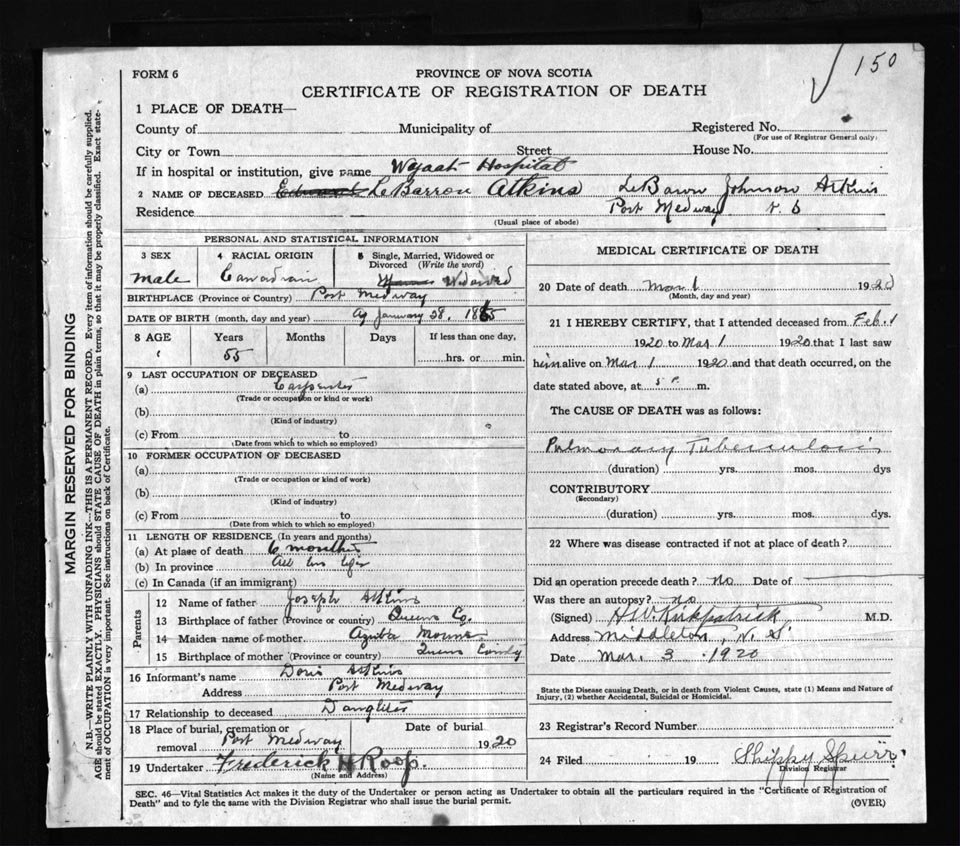 150
FORM 6
PROVINCE OF NOVA SCOTIA
CERTIFICATE OF REGISTRATION OF DEATH
MARGIN RESERVED FOR BINDING
N.B.—WRITE PLAINLY WITH UNFADING INK—THIS IS A PERMANENT RECORD. Every item of information should be carefully supplied.
AGE should be stated EXACTLY. PHYSICIANS should STATE CAUSE OF DEATH in plain terms, so that it may be properly classified. Exact state-
ment of OCCUPATION is very important. See instructions on back of Certificate.
1 PLACE OF DEATH—
County of Municipality of Registered No.
(For use of Registrar General only)
City or Town Street House No.
If in hospital or institution, give name Hospital
2 NAME OF DECEASED LeBarron Atkins LeBaron Johnson Atkins
Residence Port Medway
(Usual place of abode)
PERSONAL AND STATISTICAL INFORMATION
3 SEX male
4 RACIAL ORIGIN Canadian
5 Single, Married, Widowed or Divorced (Write the word) Widowed
BIRTHPLACE (Province or Country) Port Medway
DATE OF BIRTH (month, day and year) January 28, 1865
8 AGE Years Months Days If less than one day,
55 hrs. or min.
9 LAST OCCUPATION OF DECEASED
(a) Carpenter
(Trade or occupation or kind or work)
(b)
(Kind of industry)
(c) From to
(Date from which to which so employed)
10 FORMER OCCUPATION OF DECEASED
(a)
(Trade or occupation or kind of work)
(b)
(Kind of industry)
(c) From to
(Date from which to which so employed)
11 LENGTH OF RESIDENCE (In years and months)
(a) At place of death 6 months
(b) In province All his life
(c) In Canada (if an immigrant)
Parents
12 Name of father Joseph Atkins
13 Birthplace of father (Province or country) Queens Co.
14 Maiden name of mother
15 Birthplace of mother (Province or country) Queens County
16 Informant's name Doris Atkins
Address Port Medway
17 Relationship to deceased Daughter
18 Place of burial, cremation or removal Port Medway Date of burial 1920
19 Undertaker Frederick H Roop.
(Name and Address)
MEDICAL CERTIFICATE OF DEATH
20 Date of death Mar 1 1920
(Month, day and year)
21 I HEREBY CERTIFY, that I attended deceased from Feb. 1
1920 to Mar 1 1920 that I last saw
him alive on Mar 1 1920 and that death occurred, on the
date stated above, at 5 P. m.
The CAUSE OF DEATH was as follows:
Pulmonary Tuberculosis
(duration) yrs. mos. dys
CONTRIBUTORY
(Secondary)
(duration) yrs. mos. dys.
22 Where was disease contracted if not at place of death?
Did an operation precede death? no Date of
Was there an autopsy? no
(Signed) H.W. Kirkpatrick M.D.
Address Middleton, N. S.
Date Mar. 3 1920
State the Disease causing Death, or in death from Violent Causes, state (1) Means and Nature of
Injury, (2) whether Accidental, Suicidal or Homicidal.
23 Registrar's Record Number
24 Filed 19 Shippy Spurr
Division Registrar
SEC. 46—Vital Statistics Act makes it the duty of the Undertaker or person acting as Undertaker to obtain all the particulars required in the "Certificate of Registration of
Death" and to fyle the same with the Division Registrar who shall issue the burial permit.
(OVER)